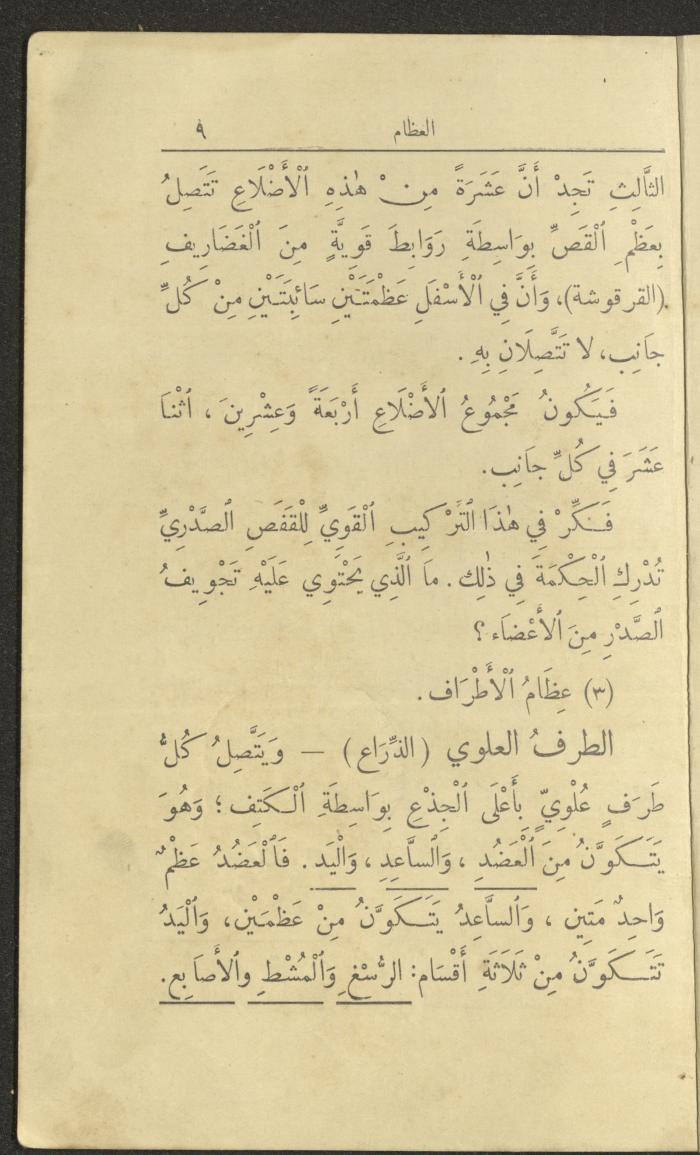 العظام ٩
الثَّالِثِ تَجِدْ أَنَّ عَشَرَةً مِنْ هٰذِهِ ٱلْأَضْلَاعِ تَتَصِلُ
بِعَظْمِ ٱلْقَصِّ بِوَاسِطَةِ رَوَابِطَ قَوِيَّةٍ مِنَ ٱلْغَضَارِيفِ
(القرقوشة)، وَأَنَّ فِي ٱلْأَسْفَلِ عَظْمَتَيْنِ سَائِبَتَيْنِ مِنْ كُلِّ
جَانِب، لا تَتَّصِلَانِ بِهِ .
فَيَكُونُ مَجْمُوعُ ٱلْأَضْلَاعِ أَرْبَعَةً وَعِشْرِينَ ، ٱثْنَا
عَشَرَ فِي كُلِّ جَانِب.
فَكِّرْ فِي هٰذَا ٱلتَّرْكِيبِ ٱلْقَوِيِّ لِلْقَفَصِ ٱلصَّدْرِيِّ
تُدْرِكِ ٱلْحِكْمَةَ فِي ذٰلِك . مَا ٱلَّذِي يَحْتَوِي عَلَيْهِ تَجْوِيفُ
ٱلصَّدْرِ مِنَ ٱلْأَعْضَاء ؟
(٣) عِظَامُ ٱلْأَطْرَاف .
الطرفُ العلوي (الذِّرَاع) — وَيَتَّصِلُ كُلُّ
طَرَفٍ عُلْوِيٍّ بِأَعْلَى ٱلْجِذْعِ بِوَاسِطَةِ ٱلْكَتِف ؛ وَهُوَ
يَتَكَوَّنُ مِنَ ٱلْعَضُدِ ، وَٱلسَّاعِدِ ، وَٱلْيَد . فَٱلْعَضُدُ عَظْمٌ
وَاحِدٌ مَتِين ، وَٱلسَّاعِدُ يَتَكَوَّنُ مِنْ عَظْمَيْن، وَٱلْيَدُ
تَتَكَوَّنُ مِنْ ثَلَاثَةِ أَقْسَام: الرُّسْغِ وَٱلْمُشْطِ وٱلأَصَابِع .